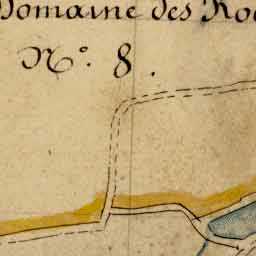 Domaine des
N.º 8.